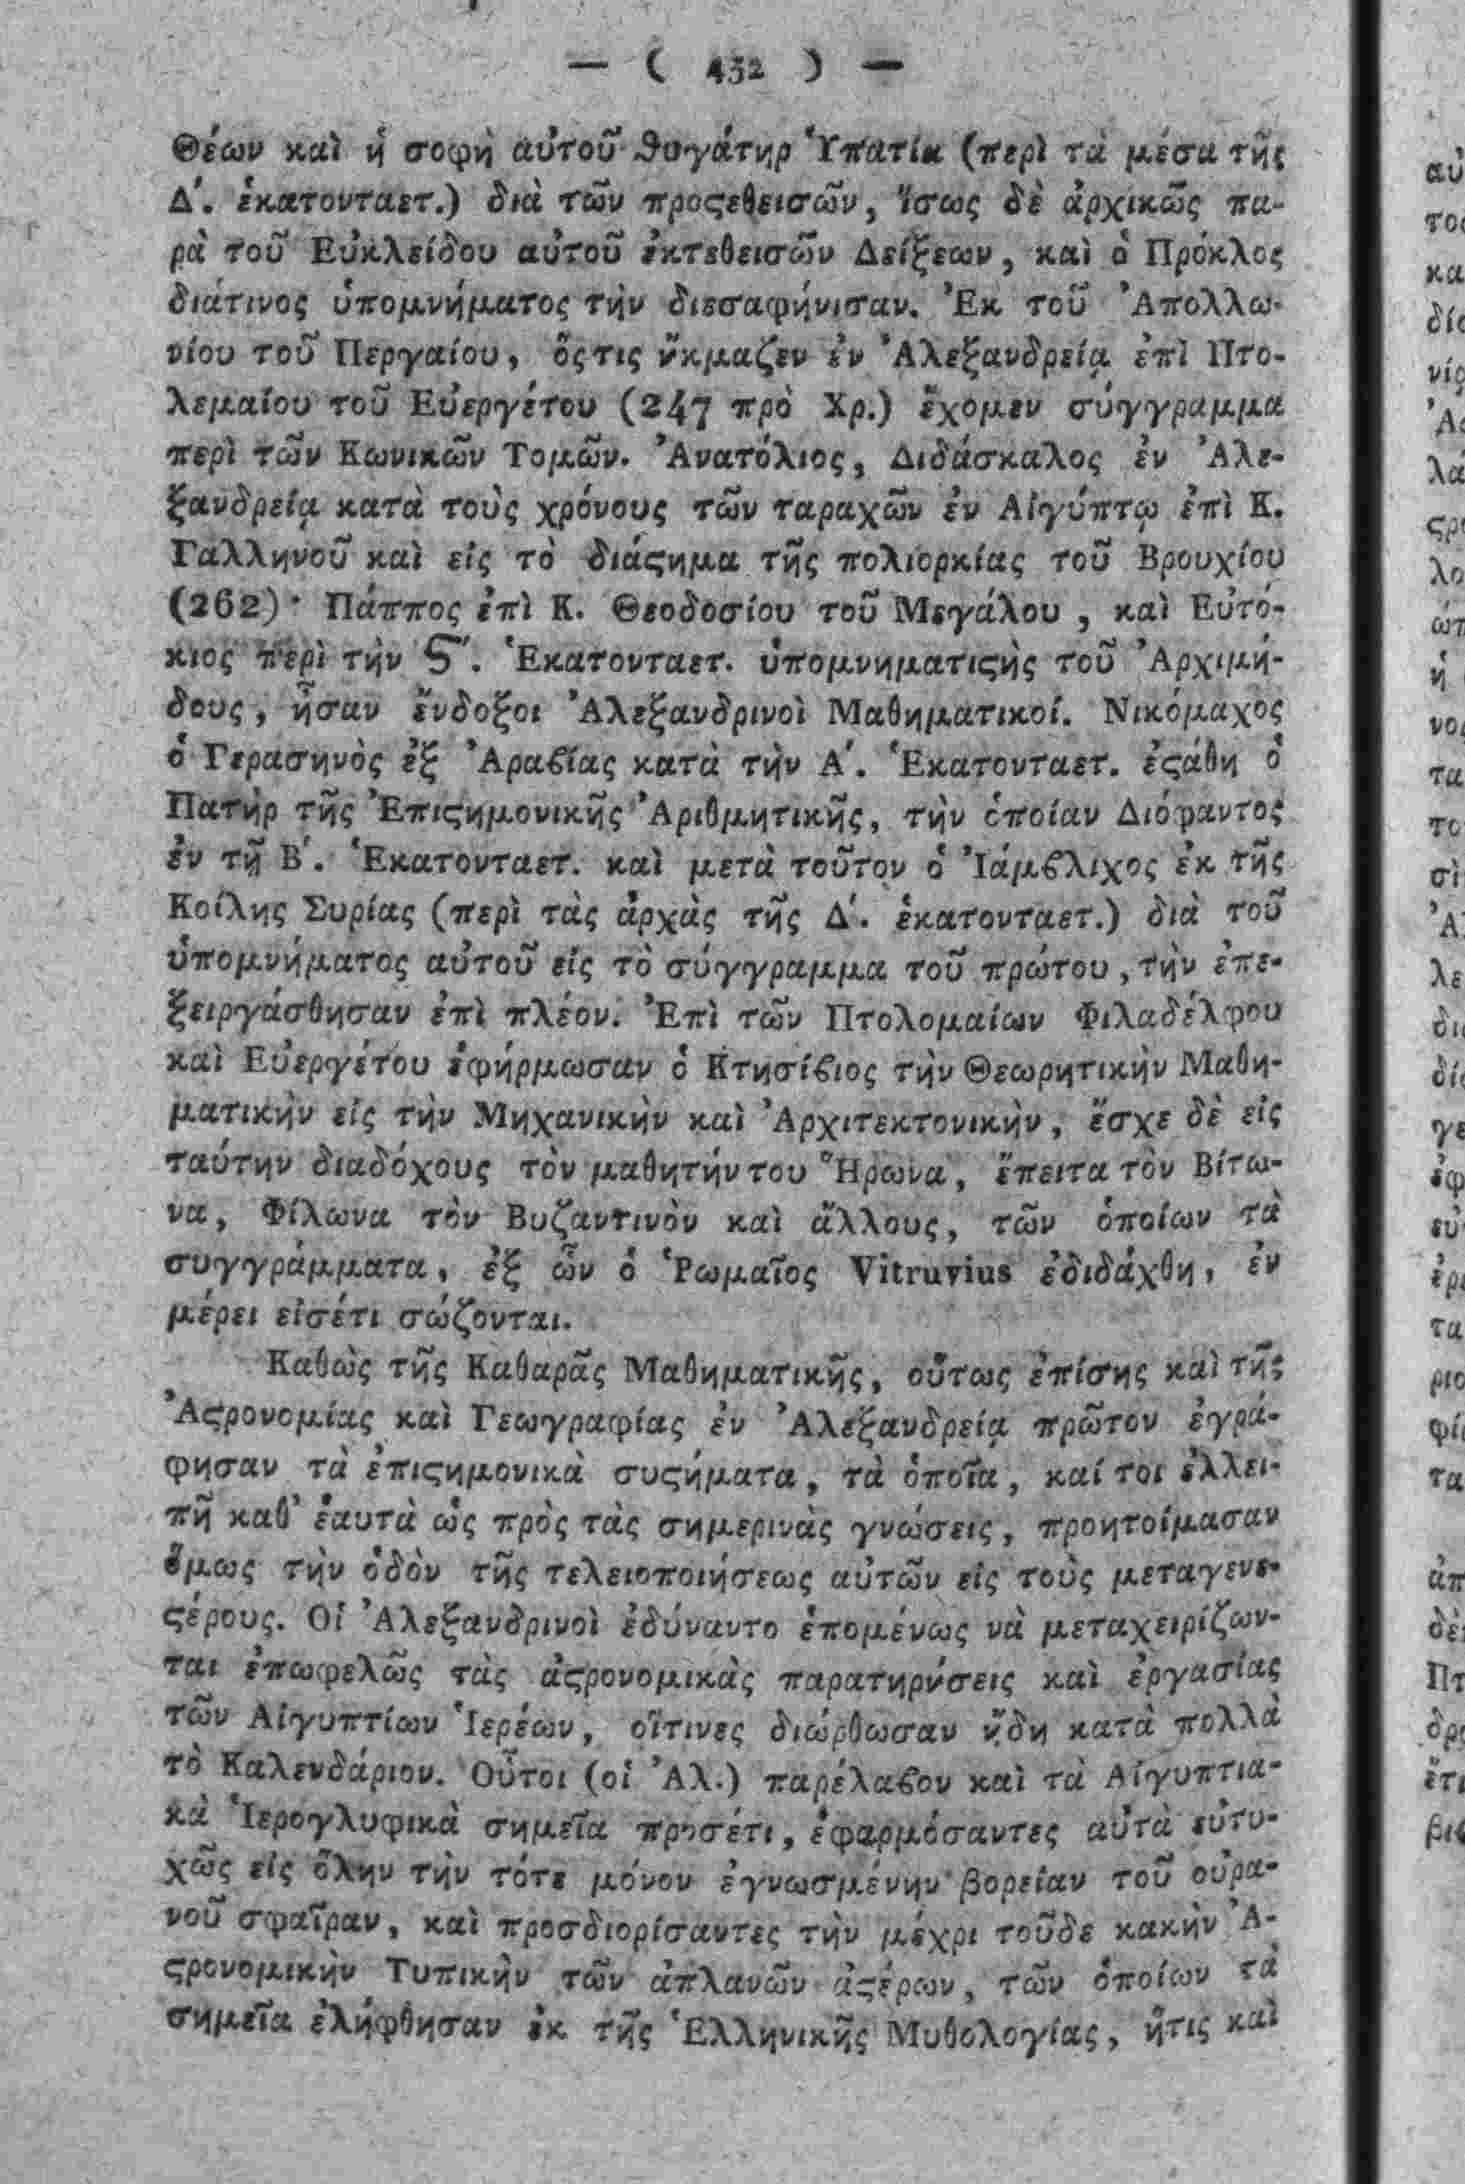 — ( 452 ) —
Θέων καὶ ἡ σοφὴ αὐτοῦ ϑυγάτηρ Ὑπατία (περὶ τὰ μέσα τῆς
Δ΄. ἑκατονταετ.) διὰ τῶν προςεθεισῶν, ἴσως δὲ ἀρχικῶς πα-
ρὰ τοῦ Εὐκλείδου αὐτοῦ ἐκτεθεισῶν Δείξεων, καὶ ὁ Πρόκλος
διάτινος ὑπομνήματος τὴν διεσαφήνισαν. Ἐκ τοῦ Ἀπολλω-
νίου τοῦ Περγαίου, ὅςτις ἤκμαζεν ἐν Ἀλεξανδρείᾳ ἐπὶ Πτο-
λεμαίου τοῦ Εὐεργέτου (247 πρὸ Χρ.) ἔχομεν σύγγραμμα
περὶ τῶν Κωνικῶν Τομῶν. Ἀνατόλιος, Διδάσκαλος ἐν Ἀλε-
ξανδρείᾳ κατὰ τοὺς χρόνους τῶν ταραχῶν ἐν Αἰγύπτῳ ἐπὶ Κ.
Γαλληνοῦ καὶ εἰς τὸ διάϛημα τῆς πολιορκίας τοῦ Βρουχίου
(262)· Πάππος ἐπὶ Κ. Θεοδοσίου τοῦ Μεγάλου, καὶ Εὐτό-
κιος περὶ τὴν Ϛ΄. Ἑκατονταετ. ὑπομνηματιϛὴς τοῦ Ἀρχιμή-
δους, ἦσαν ἔνδοξοι Ἀλεξανδρινοὶ Μαθηματικοί. Νικόμαχος
ὁ Γερασηνὸς ἐξ Ἀραϐίας κατὰ τὴν Α΄. Ἑκατονταετ. ἐϛάθη ὁ
Πατὴρ τῆς Ἐπιϛημονικῆς Ἀριθμητικῆς, τὴν ὁποίαν Διόφαντος
ἐν τῇ Β΄. Ἑκατονταετ. καὶ μετὰ τοῦτον ὁ Ἰάμϐλιχος ἐκ τῆς
Κοίλης Συρίας (περὶ τὰς ἀρχὰς τῆς Δ΄. ἑκατονταετ.) διὰ τοῦ
ὑπομνήματος αὐτοῦ εἰς τὸ σύγγραμμα τοῦ πρώτου, τὴν ἐπε-
ξειργάσθησαν ἐπὶ πλέον. Ἐπὶ τῶν Πτολομαίων Φιλαδέλφου
καὶ Εὐεργέτου ἐφήρμωσαν ὁ Κτησίϐιος τὴν Θεωρητικὴν Μαθη-
ματικὴν εἰς τὴν Μηχανικὴν καὶ Ἀρχιτεκτονικὴν, ἔσχε δὲ εἰς
ταύτην διαδόχους τὸν μαθητήν του Ἥρωνα, ἔπειτα τὸν Βίτω-
να, Φίλωνα τὸν Βυζαντινὸν καὶ ἄλλους, τῶν ὁποίων τὰ
συγγράμματα, ἐξ ὧν ὁ Ῥωμαῖος Vitruvius ἐδιδάχθη, ἐν
μέρει εἰσέτι σώζονται.
Καθὼς τῆς Καθαρᾶς Μαθηματικῆς, οὕτως ἐπίσης καὶ τῆς
Ἀϛρονομίας καὶ Γεωγραφίας ἐν Ἀλεξανδρείᾳ πρῶτον ἐγρά-
φησαν τὰ ἐπιϛημονικὰ συϛήματα, τὰ ὁποῖα, καί τοι ἐλλει-
πῆ καθ' ἑαυτὰ ὡς πρὸς τὰς σημερινὰς γνώσεις, προητοίμασαν
ὅμως τὴν ὁδὸν τῆς τελειοποιήσεως αὐτῶν εἰς τοὺς μεταγενε-
ϛέρους. Οἱ Ἀλεξανδρινοὶ ἐδύναντο ἑπομένως νὰ μεταχειρίζων-
ται ἐπωφελῶς τὰς ἀϛρονομικὰς παρατηρήσεις καὶ ἐργασίας
τῶν Αἰγυπτίων Ἱερέων, οἵτινες διώρθωσαν ἤδη κατὰ πολλὰ
τὸ Καλενδάριον. Οὗτοι (οἱ Ἀλ.) παρέλαϐον καὶ τὰ Αἰγυπτια-
κὰ Ἱερογλυφικὰ σημεῖα προσέτι, ἐφαρμόσαντες αὐτὰ εὐτυ-
χῶς εἰς ὅλην τὴν τότε μόνον ἐγνωσμένην βορείαν τοῦ οὐρα-
νοῦ σφαῖραν, καὶ προσδιορίσαντες τὴν μέχρι τοῦδε κακὴν Ἀ-
ϛρονομικὴν Τυπικὴν τῶν ἀπλανῶν ἀϛέρων, τῶν ὁποίων τὰ
σημεῖα ἐλήφθησαν ἐκ τῆς Ἑλληνικῆς Μυθολογίας, ἥτις καὶ